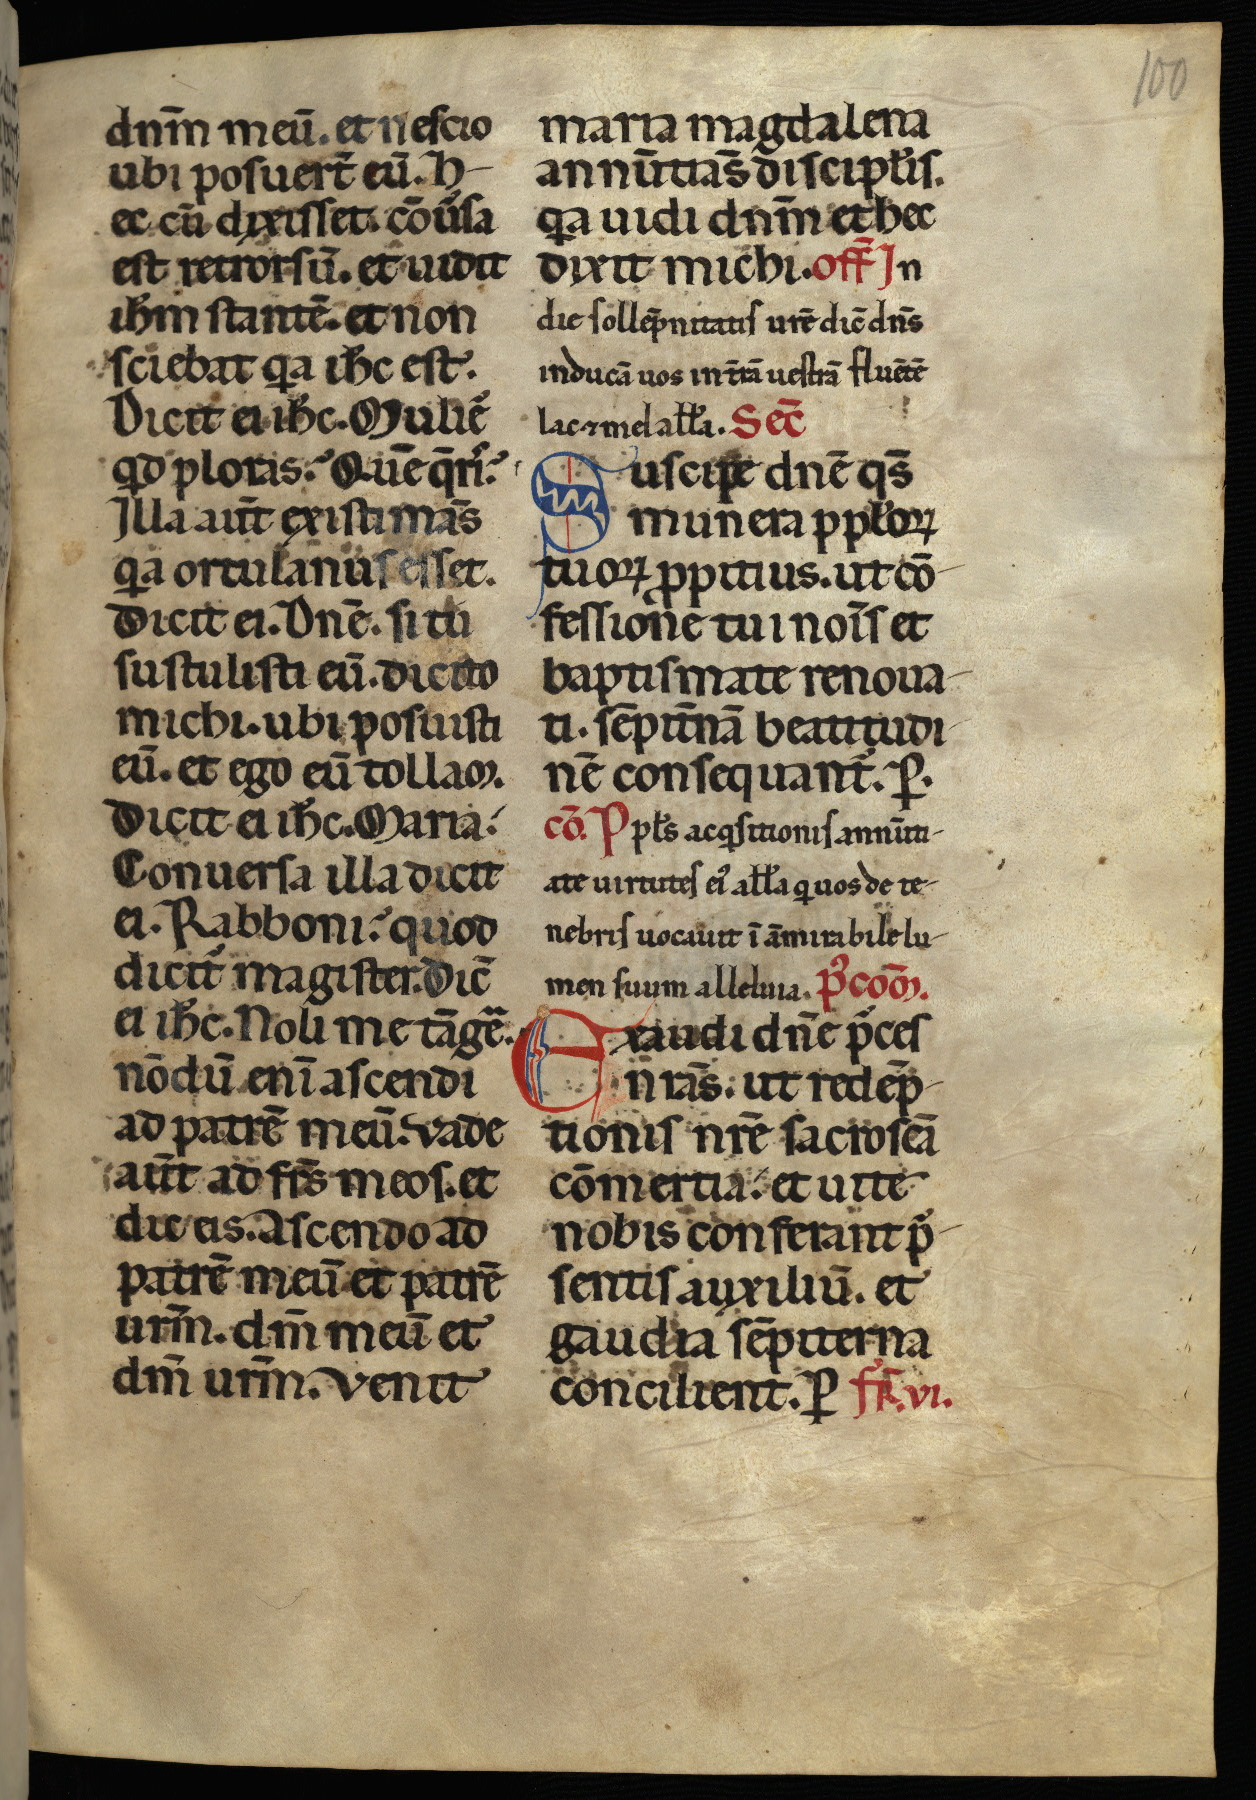 100
dnm̄ meū. et nescio
ubi posuert̄ eū. h-
ec cū dixisset. cōu̾sa
est retrorsū. et uidit
ihm̄ stantē. et non
sciebat qa ihc̄ est.
Dicit ei ihc̄. Mulie᷒
qd ploras. Quē qri᷒.
Illa aut̄ existimās
qa ortulanus esset.
Dicit ei. Dnē. si tu
sustulisti eū. dicito
michi. ubi posuisti
eū. et ego eū tollam.
Dicit ei ihc̄. Maria.
Conuersa illa dicit
ei. Rabboni. quod
dicit᷒ magister. Dic̄
ei ihc̄. Noli me tāge᷒.
nōdū enī ascendi
ad patrē meū. vade
aut̄ ad frs̄ meos. et
dic eis. Ascendo ad
patrē meū et patrē
urm̄. dm̄ meū et
dm̄ urm̄. Venit
maria magdalena
annūtiās discipulis.
qa uidi dnm̄ et hec
dixit michi. off̄ In
die sollēpnitatis urē dic̄ dns̄
inducā uos in trā̄ uestrā fluētē
lac ⁊ mel alła. Sec̄
Suscipe dnē qs̄
munera pplōꝝ
tuoꝝ ꝓpitius. ut cō-
fessione tui noīs et
baptismate renoua-
ti. sēpitnā beatitudi-
nē consequant᷒. P.
cō. Ppls̄ acqsitionis annūti-
ate uirtutes ei᷒ alła quos de te-
nebris uocauit ī āmirabile lu-
men suum alleluia. P᷒com̄.
Exaudi dnē p᷒ces
nrās. ut redēp-
tionis nrē sacroscā
cōmertia. et uite
nobis conferant p᷒-
sentis auxiliū. et
gaudia sēpiterna
concilient. P fr̄. vi.